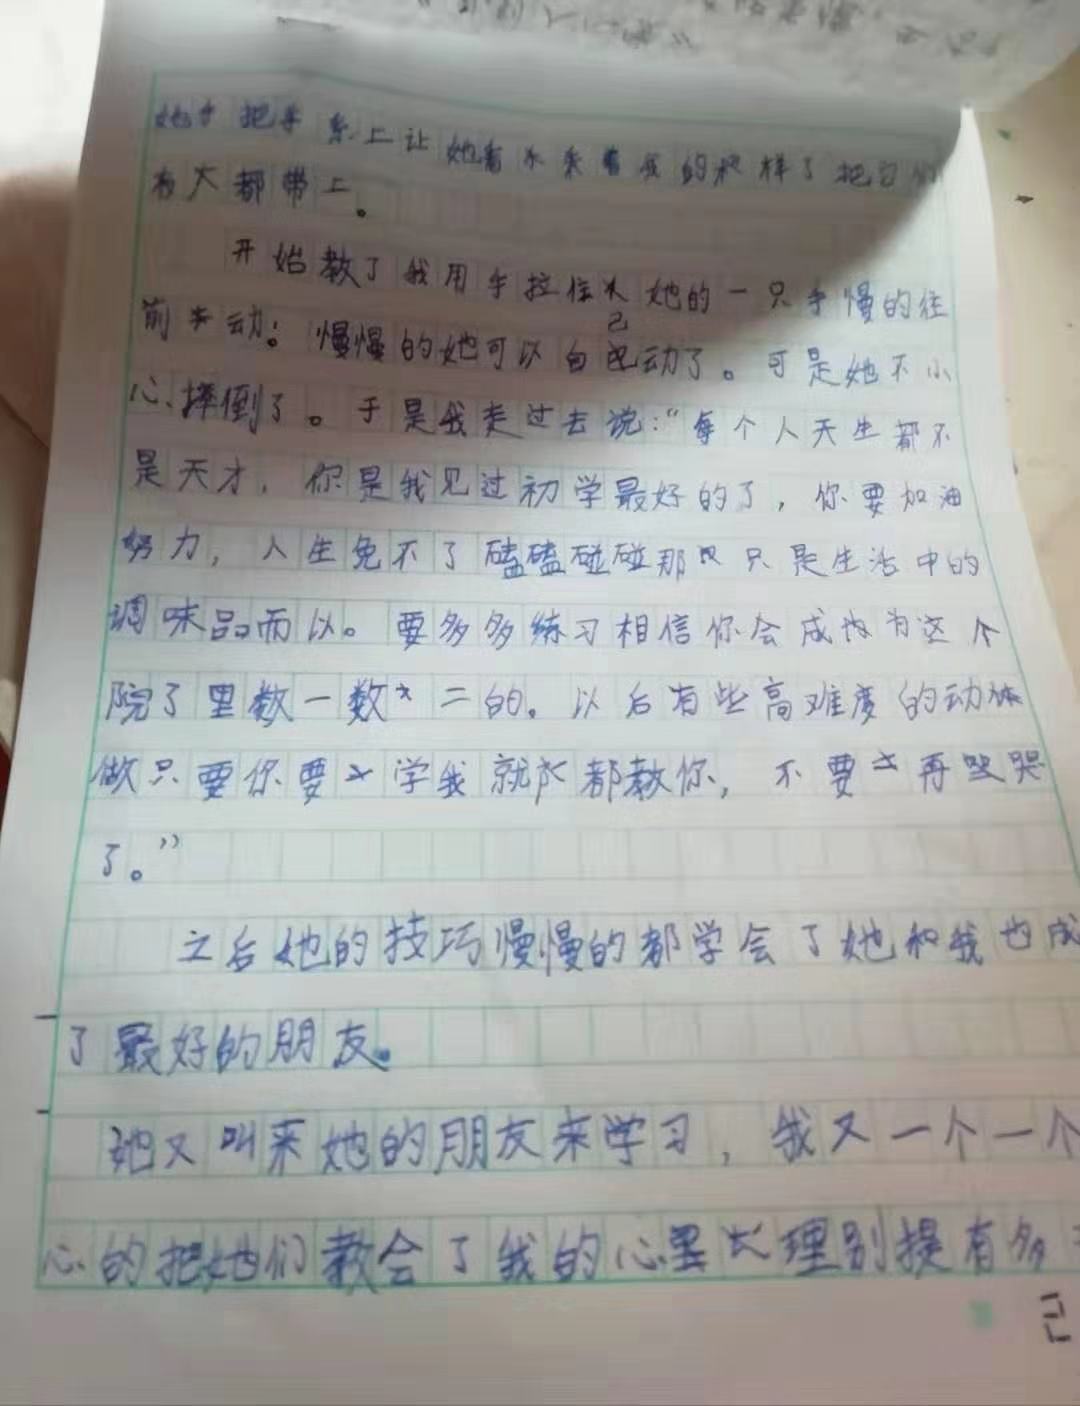 上让她看
都带上。
开始教了我用手拉住她的一只手慢的往
前动。慢慢的她可以自己动了。可是她不小
心摔倒了。于是我走过去说：“每个人天生都不
是天才，你是我见过初学最好的了，你要加油
努力，人生免不了磕磕碰碰那只是生活中的
调味品而以。要多多练习相信你会成为这个
院了里数一数二的。以后有些高难度的动
做只要你要学我就都教你，不要再哭
了。”
之后她的技巧慢慢的都学会了她和我也成
了最好的朋友。
她又叫来她的朋友来学习，我又一个一个
心的把她们教会了我的心里别提有多